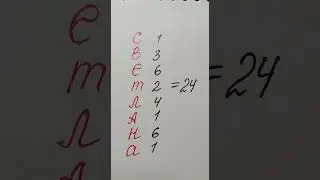 С 1
В 3
Е 6
Т 2 =24
Л 4
А 1
Н 6
А 1